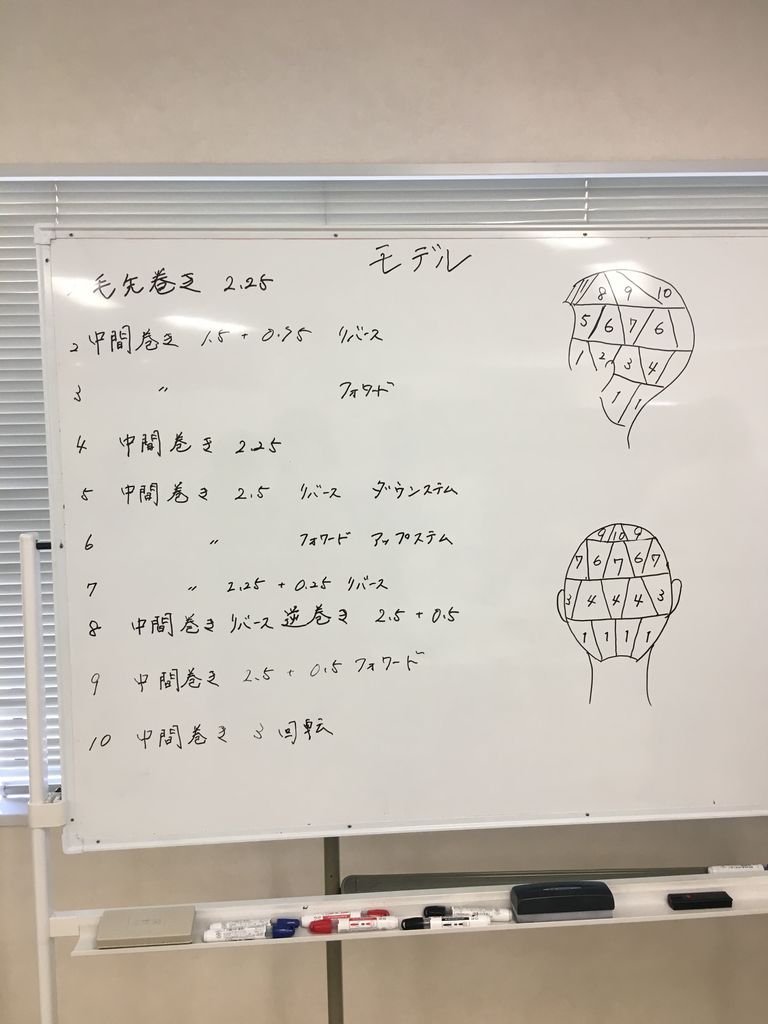 モデル
毛先巻き 2.25
2 中間巻き 1.5 + 0.75 リバース
3 〃 フォワード
4 中間巻き 2.25
5 中間巻き 2.5 リバース ダウンステム
6 〃 フォワード アップステム
7 〃 2.25 + 0.25 リバース
8 中間巻き リバース 逆巻き 2.5 + 0.5
9 中間巻き 2.5 + 0.5 フォワード
10 中間巻き 3回転
8 9 10
5 6 7 6
1 2 3 4
1 1
9 10 9
7 6 7 6 7
3 4 4 4 3
1 1 1 1